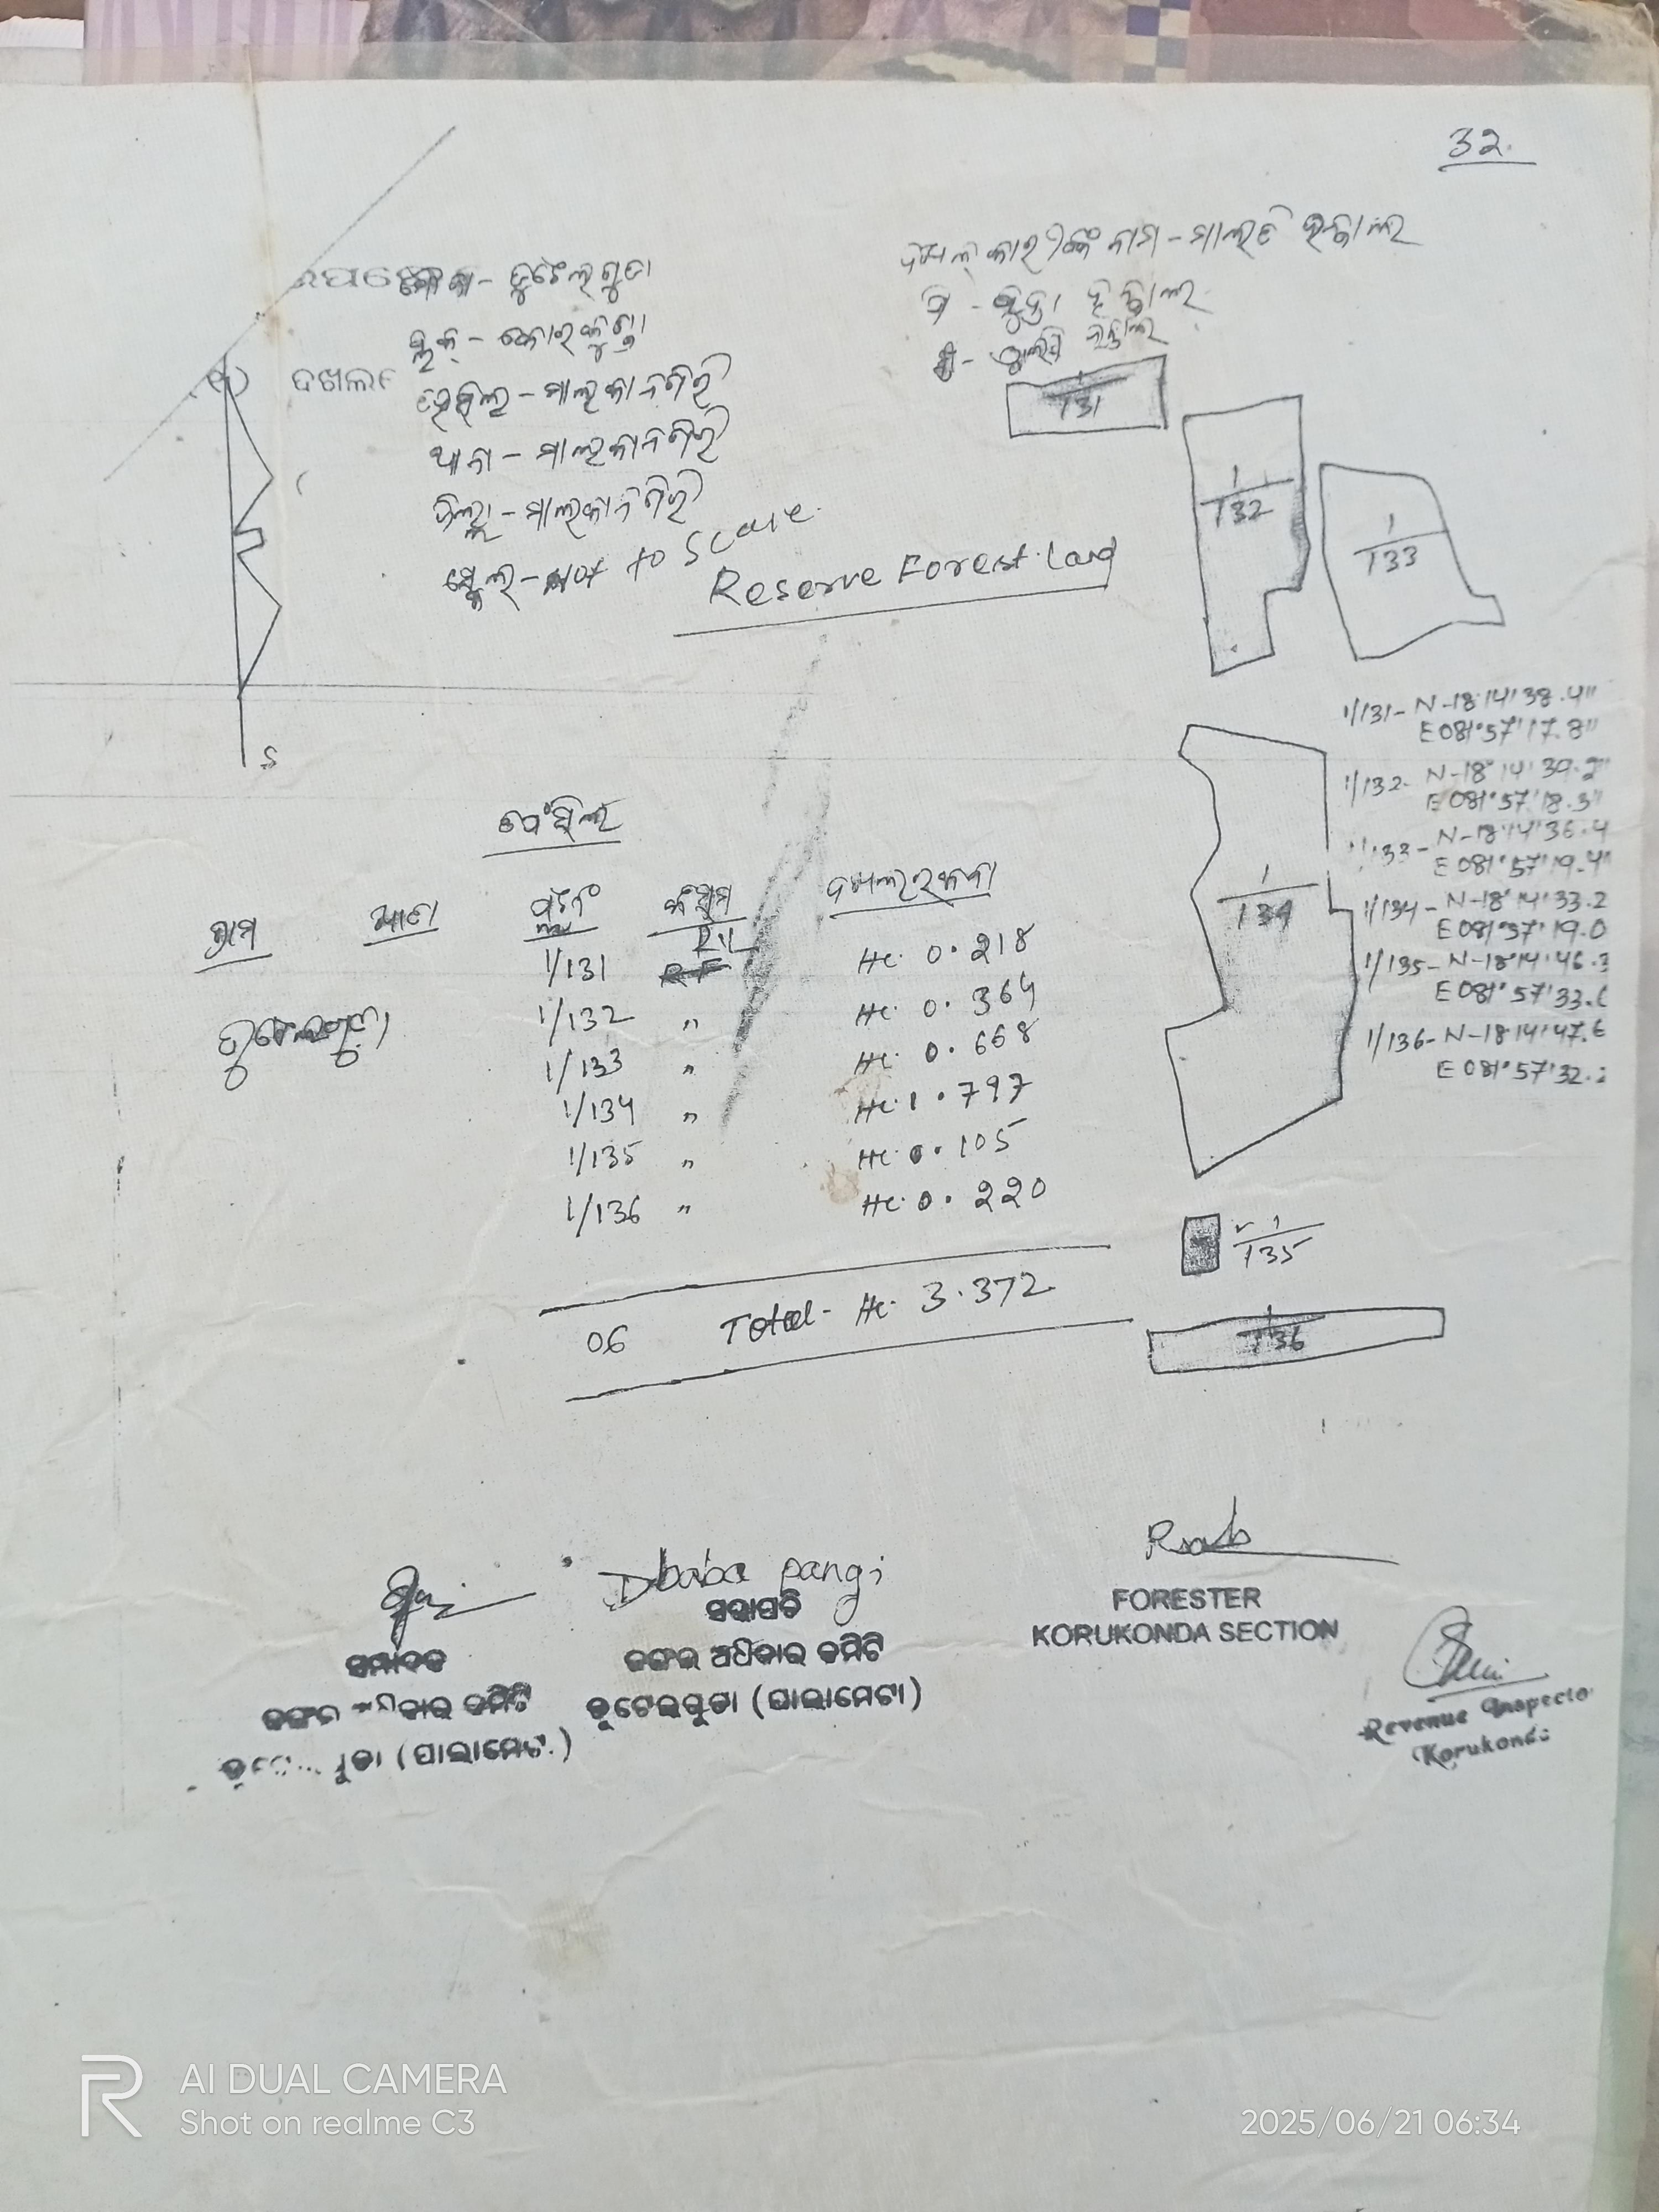 32.
ଦଖଲକାରୀଙ୍କ ନାମ - ମାଲତି ହନ୍ତାଲ
ହନ୍ତାଲ
ହନ୍ତାଲ
ବ୍ଲକ୍ - କୋରକୁଣ୍ଡା
ଦଖଲ
ତହସିଲ - ମାଲକାନଗିରୀ
ଥାନା - ମାଲକାନଗିରୀ
ଜିଲ୍ଲା - ମାଲକାନଗିରୀ
ସ୍କେଲ - Not to Scale
Reserve Forest Land
1/131
1/132
1/133
S
1/131 - N-18°14'38.4"
E 081°57'17.8"
1/132 - N-18°14'39.2"
E 081°57'18.3"
1/133 - N-18°14'36.4
E 081°57'19.4"
1/134 - N-18°14'33.2
E 081°57'19.0
1/135 - N-18°14'46.3
E 081°57'33.
1/136 - N-18°14'47.6
E 081°57'32.
1/134
ଗ୍ରାମ ଥାନା କିସମ
1/131 Hc. 0.218
1/132 " Hc. 0.364
1/133 " Hc. 0.668
1/134 " Hc. 1.797
1/135 " Hc. 0.105
1/136 " Hc. 0.220
06 Total - Hc. 3.372
1/135
1/136
Dbaba pangi
ସଭାପତି
ଜଙ୍ଗଲ ଅଧିକାର କମିଟି
ଡୁଟେଲଗୁଡା (ପାଲାମେଟା)
ସମ୍ପାଦକ
ଜଙ୍ଗଲ ଅଧିକାର କମିଟି
(ପାଲାମେଟା)
FORESTER
KORUKONDA SECTION
Revenue Inspecto
Korukonda
AI DUAL CAMERA
Shot on realme C3
2025/06/21 06:34